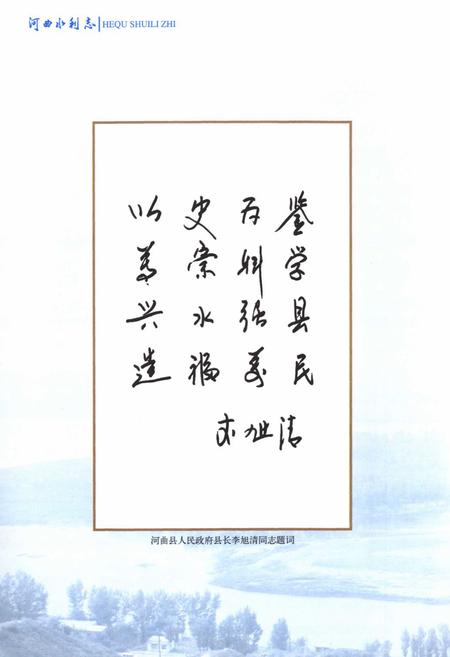 河曲水利志|HEQU SHUILI ZHI
以史为鉴
尊崇科学
兴水强县
造福萬民
李旭清
河曲县人民政府县长李旭清同志题词